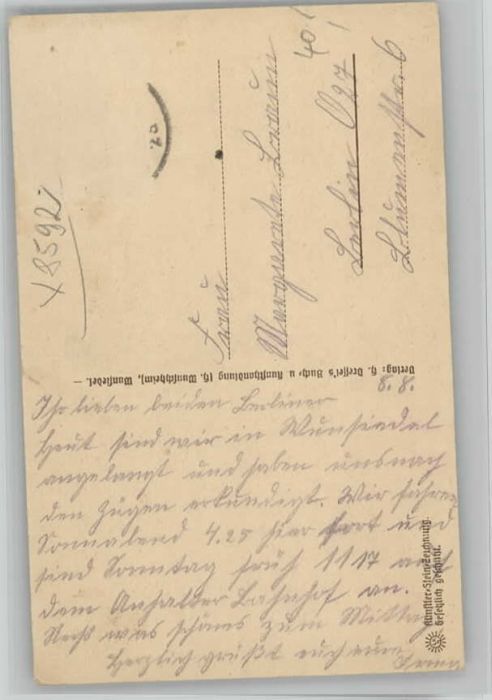 40
X 8592
20
Frau
Margarete
Berlin O 27
Blumenstr. 6
Verlag: G. Dreßel's Buch- u Kunsthandlung (H. Wunschheim), Wunsiedel. —
8.8.
Ihr lieben beiden Berliner
Heut sind wir in Wunsiedel
angelangt und haben uns nach
den Zügen erkundigt. Wir fahren
Sonnabend 4.25 hier fort und
sind Sonntag früh 11 17 auf
dem Anhalter Bahnhof an.
Recht was schöns zum Mittag
Herzlich grüßt euch eure
Künstler-Steinzeichnung.
Gesetzlich geschützt.